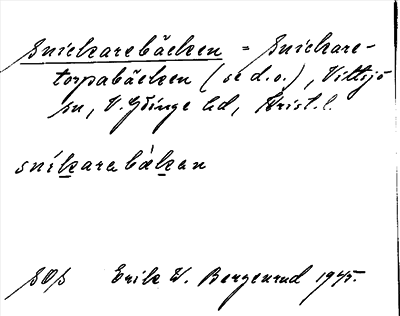 Snickarebäcken = Snickare-
torpabäcken (se d.o.), Vittsjö
sn, V. Göinge hd, Krist. l.
snikarabäkan
SOS Erik W. Bergenrud 1945.